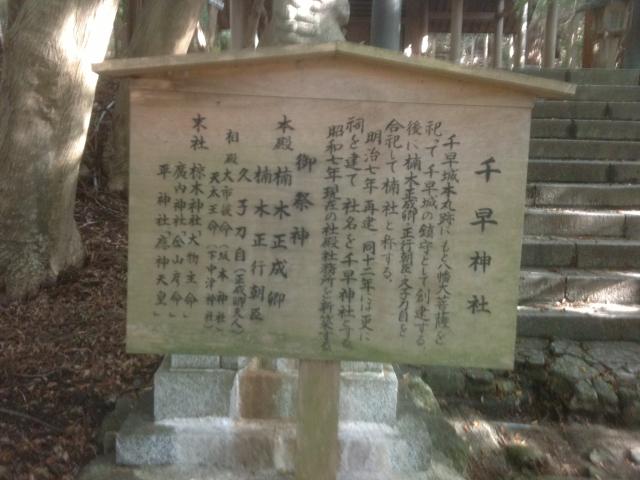 千早神社
千早城本丸跡にもと八幡大菩薩を
祀って千早城の鎮守として創建する。
後に楠木正成卿、正行朝臣、久子刀自を
合祀して楠社と称する。
明治七年再建 同十二年には更に
祠を建て 社名を千早神社とする
昭和七年 現在の社殿社務所を新築する
御祭神
本殿 楠木正成卿
楠木正行朝臣
久子刀自(正成卿夫人)
相殿 大市彼命(坂本神社)
天太王命(下中津神社)
末社 椋木神社「大物主命」
廣内神社「金山彦命」
平神社「應神天皇」